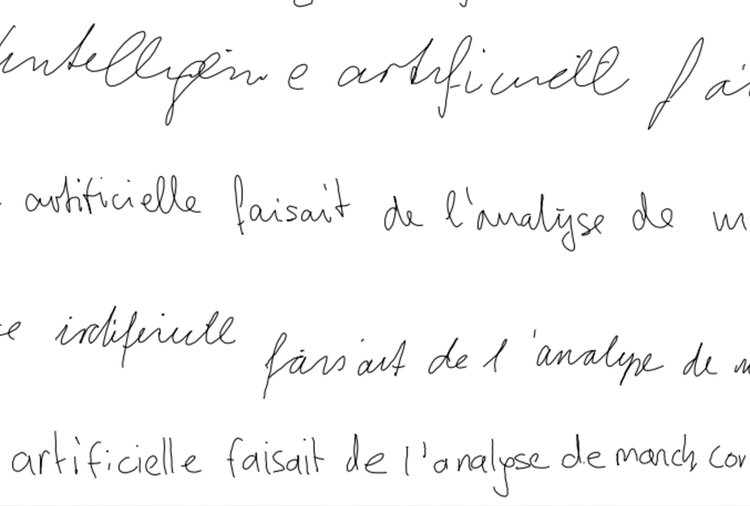 intelligence artificielle fai
artificielle faisait de l'analyse de m
e artificielle faisait de l'analyse de m
artificielle faisait de l'analyse de march con